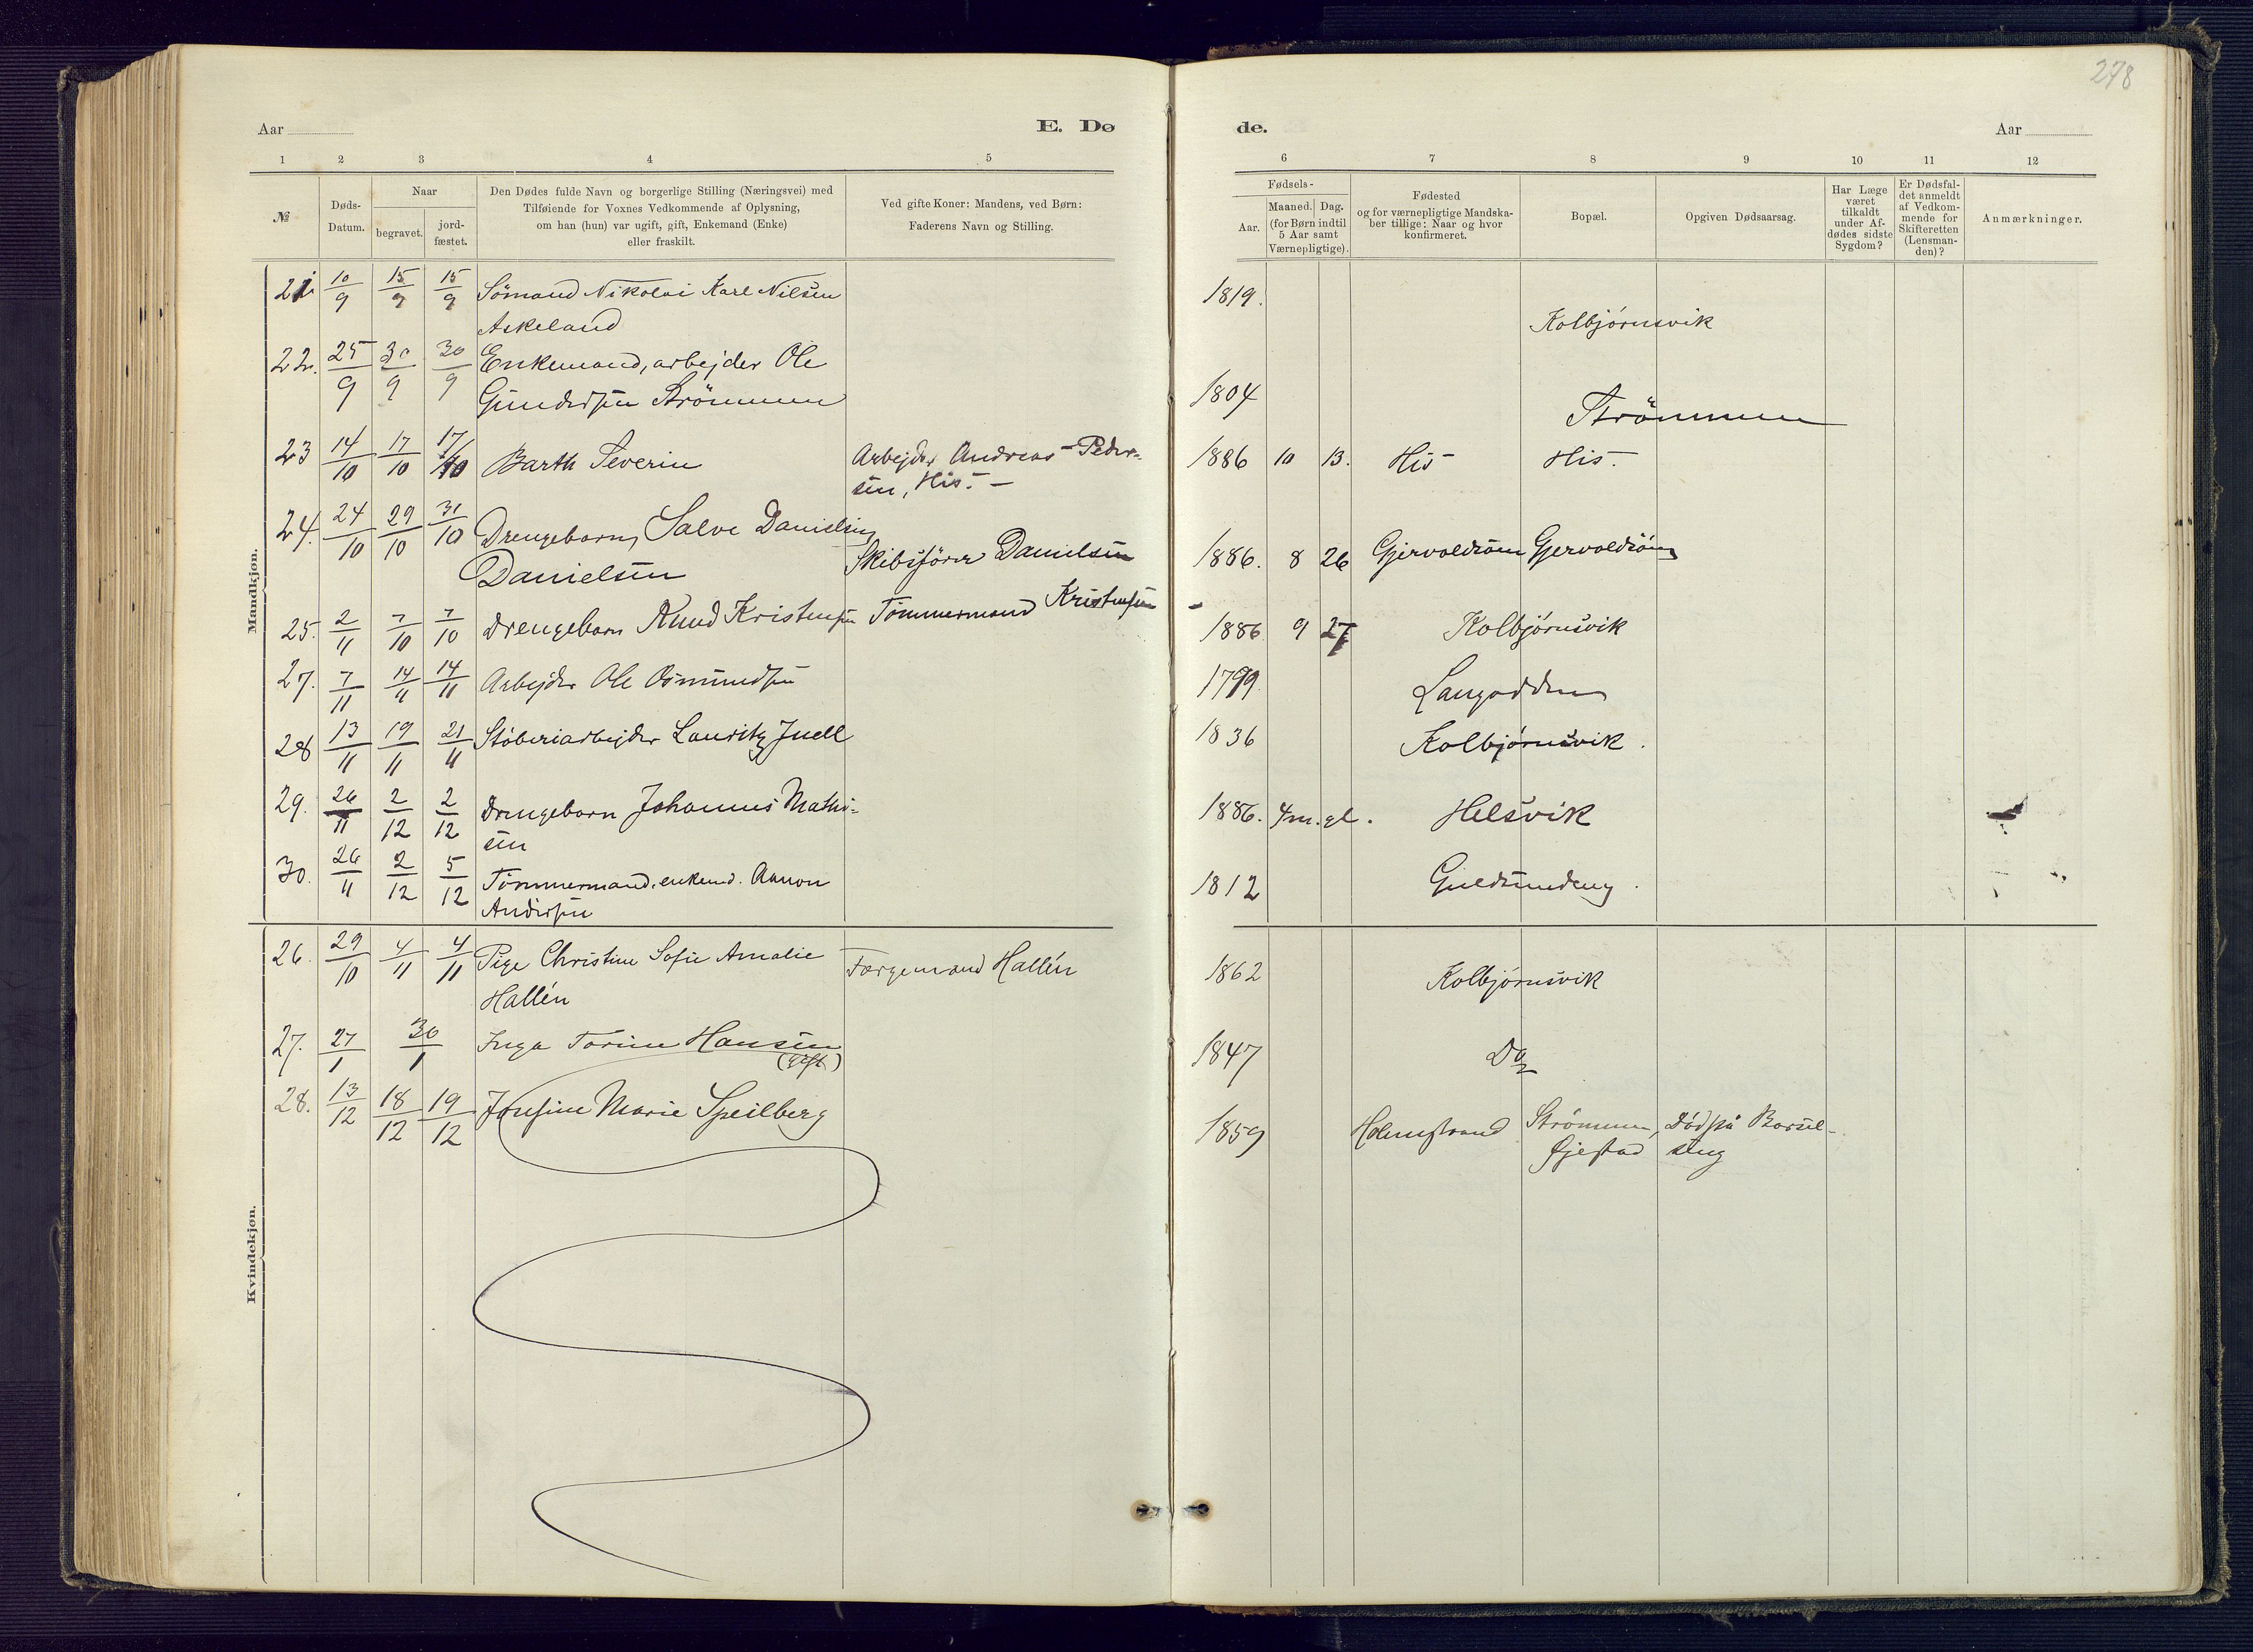 278
Aar
E. Dø
de.
Aar
1 2 3 4 5 6 7 8 9 10 11 12
№
Døds-
Datum.
Naar
begravet.
jord-
fæstet.
Den Dødes fulde Navn og borgerlige Stilling (Næringsvei) med
Tilføiende for Voxnes Vedkommende af Oplysning,
om han (hun) var ugift, gift, Enkemand (Enke)
eller fraskilt.
Ved gifte Koner: Mandens, ved Børn:
Faderens Navn og Stilling.
Fødsels-
Aar.
Maaned. Dag.
(for Børn indtil
5 Aar samt
Værnepligtige).
Fødested
og for værnepligtige Mandska-
ber tillige: Naar og hvor
konfirmeret.
Bopæl.
Opgiven Dødsaarsag.
Har Læge
været
tilkaldt
under Af-
dødes sidste
Sygdom?
Er Dødsfal-
det anmeldt
af Vedkom-
mende for
Skifteretten
(Lensman-
den)?
Anmærkninger.
Mandkjøn.
21 10/9 15/9 15/9 Sömand Nikolai Karl Nilsen 1819.
Askeland Kolbjørnsvik
22. 25/9 30/9 30/9 Enkemand, arbejder Ole
Gundersen Strömmen 1804 Strömmen
23 14/10 17/10 17/10 Barth Severin Arbejder Andreas Peder- 1886 10 13. His His.
sen, His. -
24. 24/10 29/10 31/10 Drengebarn, Salve Danielsen
Danielsen Skibsfører Danielsen 1886. 8 26 Gjervoldsøen Gjervoldsøen
25. 2/11 7/10 7/10 Drengebarn Knud Kristensen Tømmermand Kristensen 1886 9 27 Kolbjørnsvik
27. 7/11 14/11 14/11 Arbejder Ole Osmundsen 1799. Langodden
28 13/11 19/11 21/11 Støberiarbejder Lauritz Juell 1836 Kolbjørnsvik.
29. 26/11 2/12 2/12 Drengebarn Johannes Mathi- 1886. 4 m. gl. Helsvik
sen
30. 26/11 2/12 5/12 Tømmermand, enkem. Aanon 1812 Guldsmedeng.
Andersen
Kvindekjøn.
26. 29/10 4/11 4/11 Pige Christine Sofie Amalie Færgemand Hallén 1862 Kolbjørnsvik
Hallén
27. 27/1 30/1 Inga Torine Hansen 1847 Do
(gift)
28. 13/12 18/12 19/12 Josefine Marie Speilberg 1859 Holmestrand Strømmen, Død på Barsel-
Øjestad seng